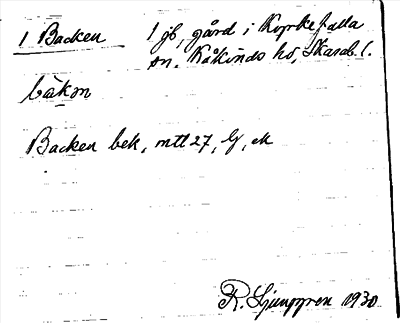 1 Backen
1 jb, gård i Kyrkefalla
sn. Kåkinds hd, Skarab. l.
bàkm
Backen bek, mtl 27, lj, ek
R. Ljunggren 1930